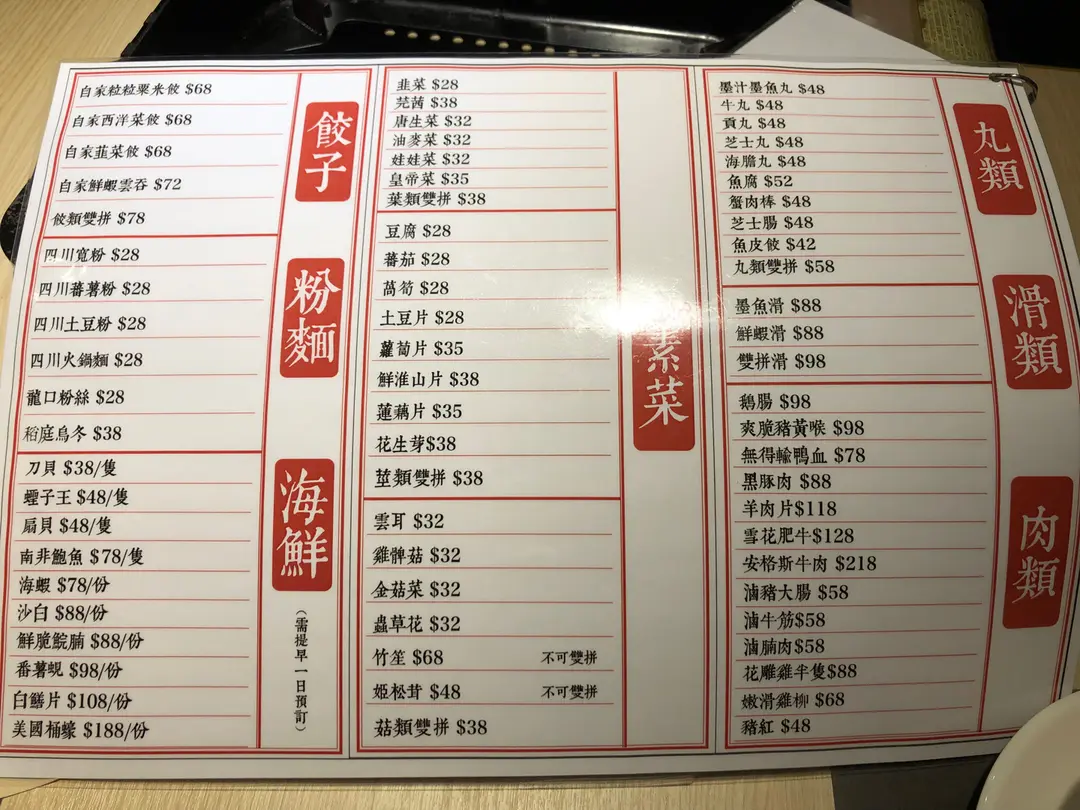 丸類
墨汁墨魚丸 $48
牛丸 $48
貢丸 $48
芝士丸 $48
海膽丸 $48
魚腐 $52
蟹肉棒 $48
芝士腸 $48
魚皮餃 $42
丸類雙拼 $58
滑類
墨魚滑 $88
鮮蝦滑 $88
雙拼滑 $98
肉類
鵝腸 $98
爽脆豬黃喉 $98
無得輸鴨血 $78
黑豚肉 $88
羊肉片$118
雪花肥牛$128
安格斯牛肉 $218
滷豬大腸 $58
滷牛筋$58
滷腩肉$58
花雕雞半隻$88
嫩滑雞柳 $68
豬紅 $48
素菜
韭菜 $28
芫茜 $38
唐生菜 $32
油麥菜 $32
娃娃菜 $32
皇帝菜 $35
葉類雙拼 $38
豆腐 $28
蕃茄 $28
萵筍 $28
土豆片 $28
蘿蔔片 $35
鮮淮山片 $38
蓮藕片 $35
花生芽$38
莖類雙拼 $38
雲耳 $32
雞髀菇 $32
金菇菜 $32
蟲草花 $32
竹笙 $68 不可雙拼
姬松茸 $48 不可雙拼
菇類雙拼 $38
餃子
自家粒粒粟米餃 $68
自家西洋菜餃 $68
自家韮菜餃 $68
自家鮮蝦雲吞 $72
餃類雙拼 $78
粉麵
四川寬粉 $28
四川蕃薯粉 $28
四川土豆粉 $28
四川火鍋麵 $28
龍口粉絲 $28
稻庭烏冬 $38
海鮮
(需提早一日預訂)
刀貝 $38/隻
蟶子王 $48/隻
扇貝 $48/隻
南非鮑魚 $78/隻
海蝦 $78/份
沙白 $88/份
鮮脆鯇腩 $88/份
番薯蜆 $98/份
白鱔片 $108/份
美國桶蠔 $188/份